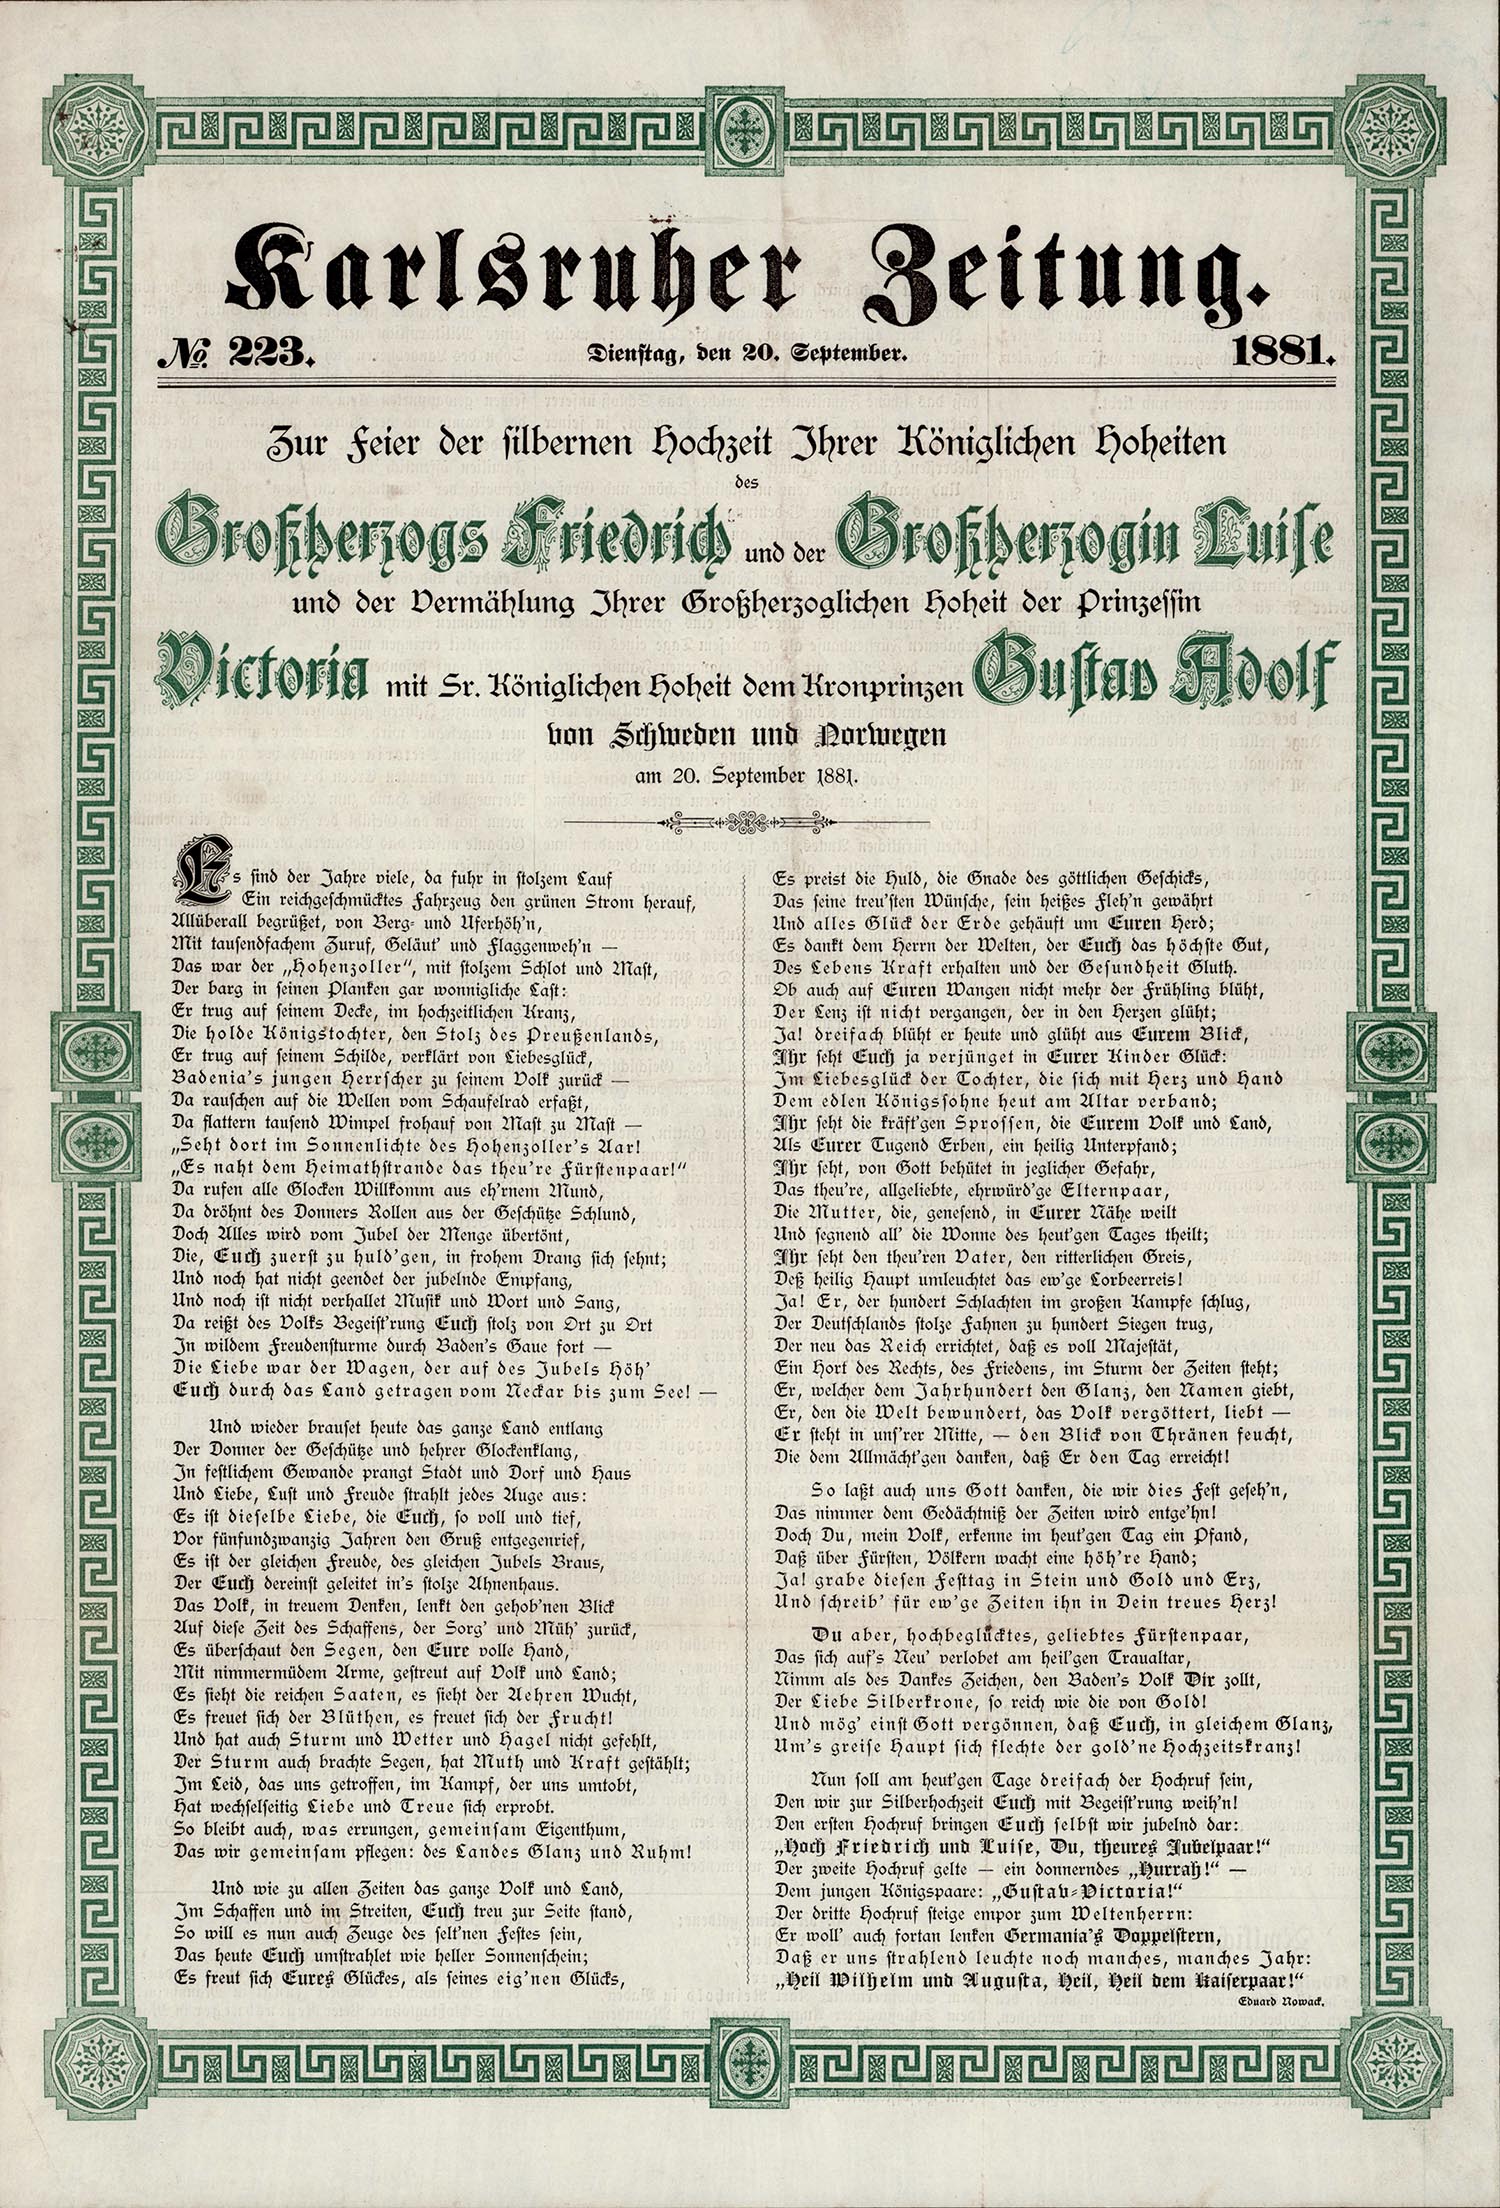 Karlsruher Zeitung.
No. 223.
Dienstag, den 20. September.
1881.
Zur Feier der silbernen Hochzeit Ihrer Königlichen Hoheiten
des
Großherzogs Friedrich und der Großherzogin Luise
und der Vermählung Ihrer Großherzoglichen Hoheit der Prinzessin
Victoria mit Sr. Königlichen Hoheit dem Kronprinzen Gustav Adolf
von Schweden und Norwegen
am 20. September 1881.
Es sind der Jahre viele, da fuhr in stolzem Lauf
Ein reichgeschmücktes Fahrzeug den grünen Strom herauf,
Allüberall begrüßet, von Berg- und Uferhöh'n,
Mit tausendfachem Zuruf, Geläut' und Flaggenweh'n —
Das war der „Hohenzoller“, mit stolzem Schlot und Mast,
Der barg in seinen Planken gar wonnigliche Last:
Er trug auf seinem Decke, im hochzeitlichen Kranz,
Die holde Königstochter, den Stolz des Preußenlands,
Er trug auf seinem Schilde, verklärt von Liebesglück,
Badenia's jungen Herrscher zu seinem Volk zurück —
Da rauschen auf die Wellen vom Schaufelrad erfaßt,
Da flattern tausend Wimpel frohauf von Mast zu Mast —
„Seht dort im Sonnenlichte des Hohenzoller's Aar!
„Es naht dem Heimathstrande das theu're Fürstenpaar!“
Da rufen alle Glocken Willkomm aus eh'rnem Mund,
Da dröhnt des Donners Rollen aus der Geschütze Schlund,
Doch Alles wird vom Jubel der Menge übertönt,
Die, Euch zuerst zu huld'gen, in frohem Drang sich sehnt;
Und noch hat nicht geendet der jubelnde Empfang,
Und noch ist nicht verhallet Musik und Wort und Sang,
Da reißt des Volks Begeist'rung Euch stolz von Ort zu Ort
In wildem Freudensturme durch Baden's Gaue fort —
Die Liebe war der Wagen, der auf des Jubels Höh'
Euch durch das Land getragen vom Neckar bis zum See! —
Und wieder brauset heute das ganze Land entlang
Der Donner der Geschütze und hehrer Glockenklang,
In festlichem Gewande prangt Stadt und Dorf und Haus
Und Liebe, Lust und Freude strahlt jedes Auge aus:
Es ist dieselbe Liebe, die Euch, so voll und tief,
Vor fünfundzwanzig Jahren den Gruß entgegenrief,
Es ist der gleichen Freude, des gleichen Jubels Braus,
Der Euch dereinst geleitet in's stolze Ahnenhaus.
Das Volk, in treuem Denken, lenkt den gehob'nen Blick
Auf diese Zeit des Schaffens, der Sorg' und Müh' zurück,
Es überschaut den Segen, den Eure volle Hand,
Mit nimmermüdem Arme, gestreut auf Volk und Land;
Es sieht die reichen Saaten, es sieht der Aehren Wucht,
Es freuet sich der Blüthen, es freuet sich der Frucht!
Und hat auch Sturm und Wetter und Hagel nicht gefehlt,
Der Sturm auch brachte Segen, hat Muth und Kraft gestählt;
Im Leid, das uns getroffen, im Kampf, der uns umtobt,
Hat wechselseitig Liebe und Treue sich erprobt.
So bleibt auch, was errungen, gemeinsam Eigenthum,
Das wir gemeinsam pflegen: des Landes Glanz und Ruhm!
Und wie zu allen Zeiten das ganze Volk und Land,
Im Schaffen und im Streiten, Euch treu zur Seite stand,
So will es nun auch Zeuge des selt'nen Festes sein,
Das heute Euch umstrahlet wie heller Sonnenschein;
Es freut sich Eures Glückes, als seines eig'nen Glücks,
Es preist die Huld, die Gnade des göttlichen Geschicks,
Das seine treu'sten Wünsche, sein heißes Fleh'n gewährt
Und alles Glück der Erde gehäuft um Euren Herd;
Es dankt dem Herrn der Welten, der Euch das höchste Gut,
Des Lebens Kraft erhalten und der Gesundheit Gluth.
Ob auch auf Euren Wangen nicht mehr der Frühling blüht,
Der Lenz ist nicht vergangen, der in den Herzen glüht;
Ja! dreifach blüht er heute und glüht aus Eurem Blick,
Ihr seht Euch ja verjünget in Eurer Kinder Glück:
Im Liebesglück der Tochter, die sich mit Herz und Hand
Dem edlen Königssohne heut am Altar verband;
Ihr seht die kräft'gen Sprossen, die Eurem Volk und Land,
Als Eurer Tugend Erben, ein heilig Unterpfand;
Ihr seht, von Gott behütet in jeglicher Gefahr,
Das theu're, allgeliebte, ehrwürd'ge Elternpaar,
Die Mutter, die, genesend, in Eurer Nähe weilt
Und segnend all' die Wonne des heut'gen Tages theilt;
Ihr seht den theu'ren Vater, den ritterlichen Greis,
Deß heilig Haupt umleuchtet das ew'ge Lorbeerreis!
Ja! Er, der hundert Schlachten im großen Kampfe schlug,
Der Deutschlands stolze Fahnen zu hundert Siegen trug,
Der neu das Reich errichtet, daß es voll Majestät,
Ein Hort des Rechts, des Friedens, im Sturm der Zeiten steht;
Er, welcher dem Jahrhundert den Glanz, den Namen giebt,
Er, den die Welt bewundert, das Volk vergöttert, liebt —
Er steht in uns'rer Mitte, — den Blick von Thränen feucht,
Die dem Allmächt'gen danken, daß Er den Tag erreicht!
So laßt auch uns Gott danken, die wir dies Fest geseh'n,
Das nimmer dem Gedächtniß der Zeiten wird entge'hn!
Doch Du, mein Volk, erkenne im heut'gen Tag ein Pfand,
Daß über Fürsten, Völkern wacht eine höh're Hand;
Ja! grabe diesen Festtag in Stein und Gold und Erz,
Und schreib' für ew'ge Zeiten ihn in Dein treues Herz!
Du aber, hochbeglücktes, geliebtes Fürstenpaar,
Das sich auf's Neu' verlobet am heil'gen Traualtar,
Nimm als des Dankes Zeichen, den Baden's Volk Dir zollt,
Der Liebe Silberkrone, so reich wie die von Gold!
Und mög' einst Gott vergönnen, daß Euch, in gleichem Glanz,
Um's greise Haupt sich flechte der gold'ne Hochzeitskranz!
Nun soll am heut'gen Tage dreifach der Hochruf sein,
Den wir zur Silberhochzeit Euch mit Begeist'rung weih'n!
Den ersten Hochruf bringen Euch selbst wir jubelnd dar:
„Hoch Friedrich und Luise, Du, theures Jubelpaar!“
Der zweite Hochruf gelte — ein donnerndes „Hurrah!“ —
Dem jungen Königspaare: „Gustav-Victoria!“
Der dritte Hochruf steige empor zum Weltenherrn:
Er woll' auch fortan lenken Germania's Doppelstern,
Daß er uns strahlend leuchte noch manches, manches Jahr:
„Heil Wilhelm und Augusta, Heil, Heil dem Kaiserpaar!“
Eduard Nowack.